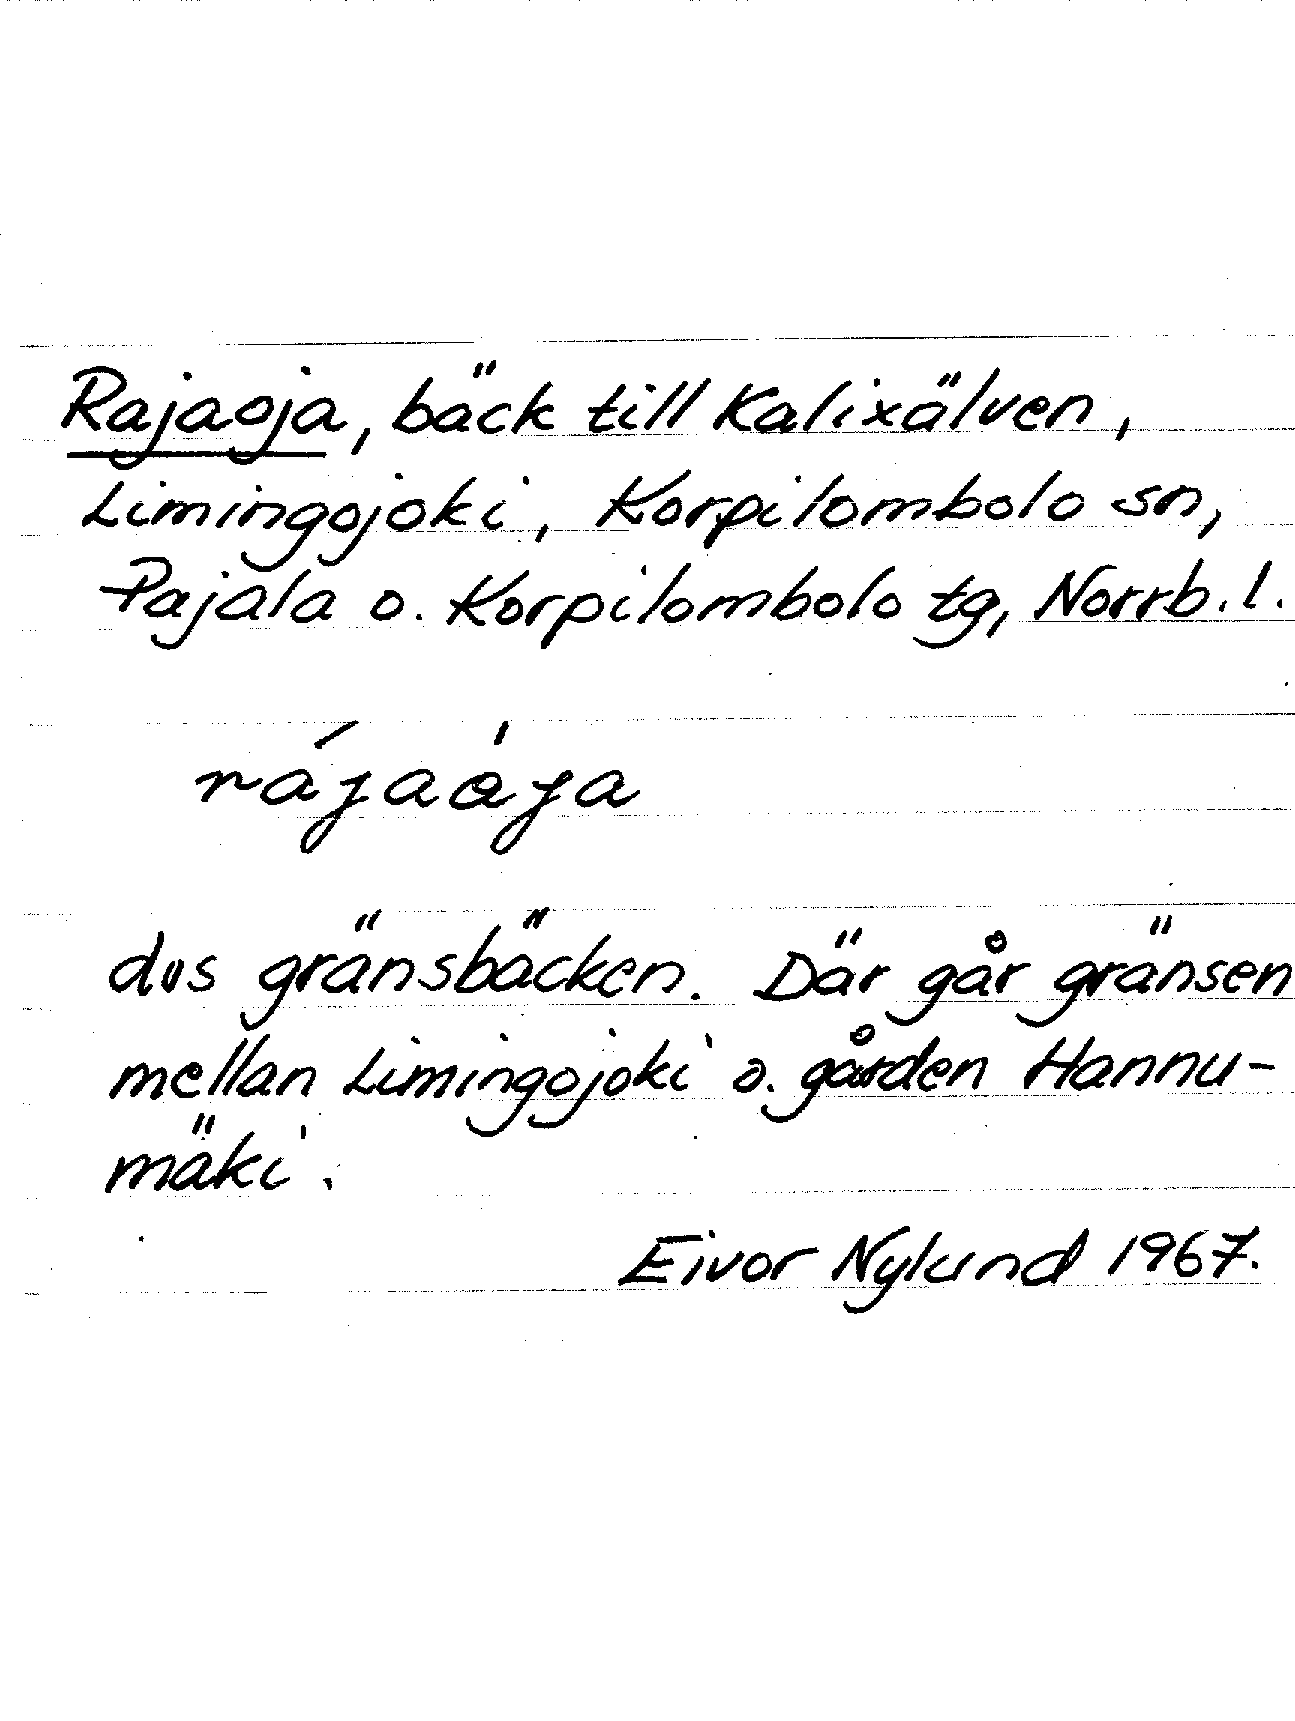 Rajaoja, bäck till Kalixälven,
Limingojoki, Korpilombolo sn,
Pajala o. Korpilombolo tg, Norrb. l.
rájaája
dvs gränsbäcken. Där går gränsen
mellan Limingojoki o. gården Hannu-
mäki.
Eivor Nylund 1967.